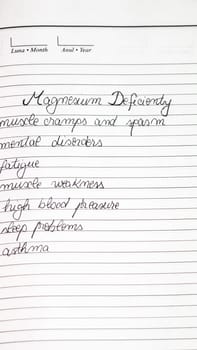 Luna • Month Anul • Year
Magnesium Deficienty
muscle cramps and spasm
mental disorders
fatigue
muscle weakness
high blood pheasure
sleep problems
asthma